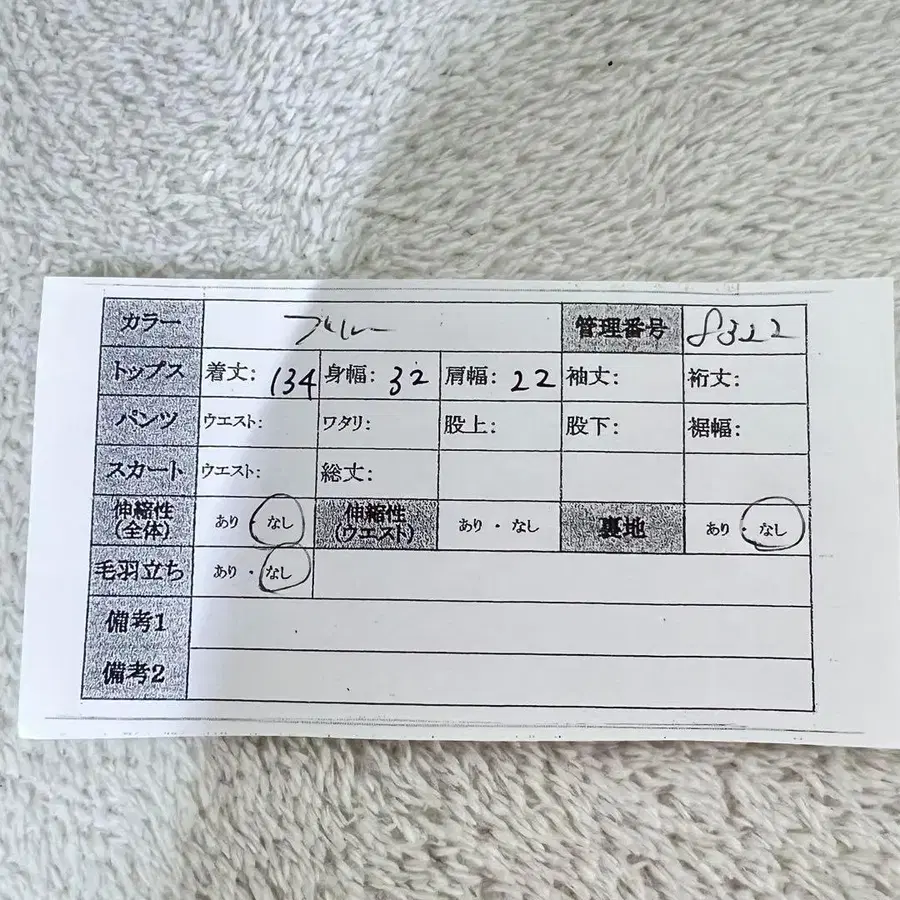 カラー ブルー 管理番号 8322
トップス 着丈: 134 身幅: 32 肩幅: 22 袖丈: 裄丈:
パンツ ウエスト: ワタリ: 股上: 股下: 裾幅:
スカート ウエスト: 総丈:
伸縮性(全体) あり・なし 伸縮性(ウエスト) あり・なし 裏地 あり・なし
毛羽立ち あり・なし
備考1
備考2